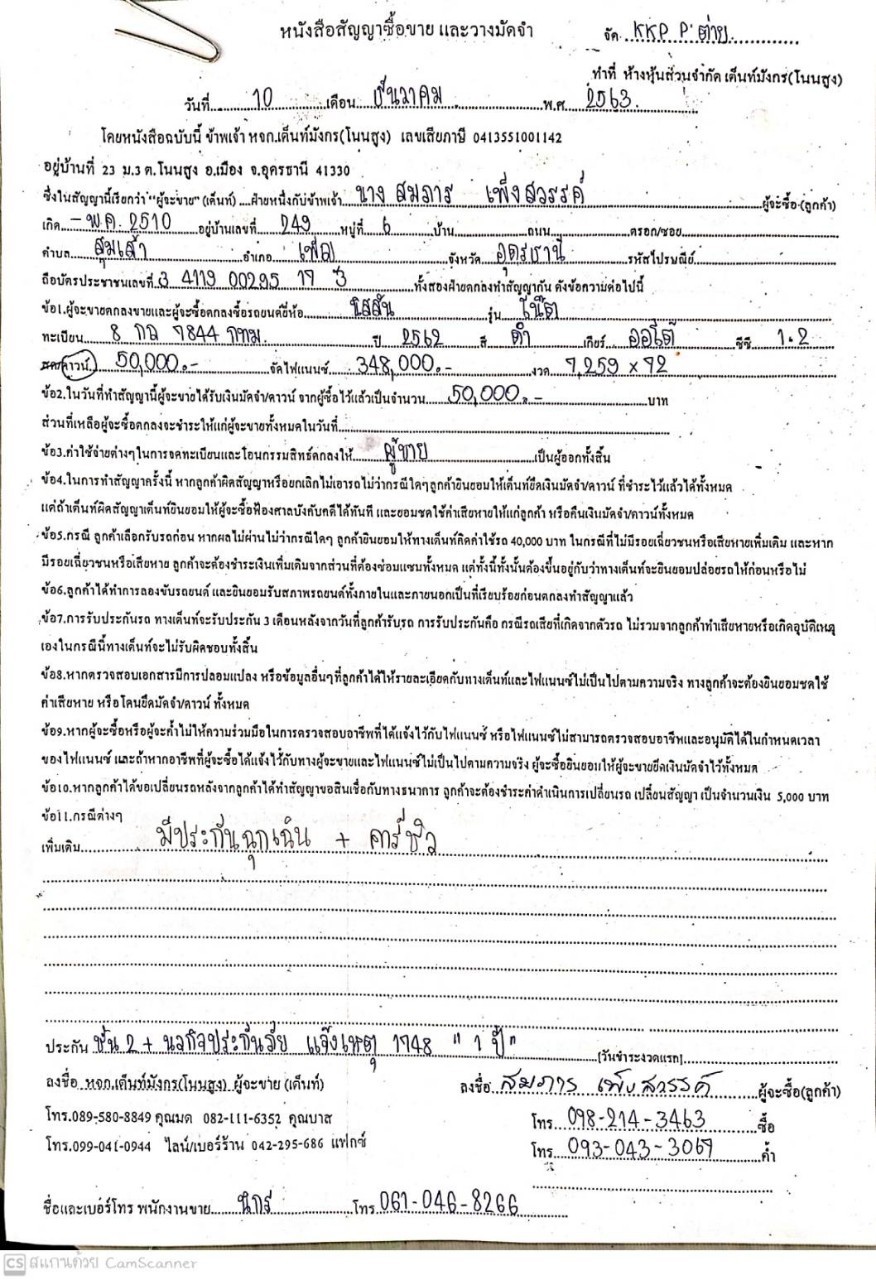 หนังสือสัญญาซื้อขาย และวางมัดจำ
จัด KKP P'ต่าย
ทำที่ ห้างหุ้นส่วนจำกัด เต็นท์มังกร(โนนสูง)
วันที่ 10 เดือน ธันวาคม พ.ศ 2563
โดยหนังสือฉบับนี้ ข้าพเจ้า หจก.เต็นท์มังกร(โนนสูง) เลขเสียภาษี 0413551001142
อยู่บ้านที่ 23 ม.3 ต.โนนสูง อ.เมือง จ.อุดรธานี 41330
ซึ่งในสัญญานี้เรียกว่า "ผู้จะขาย" (เต็นท์) ฝ่ายหนึ่งกับข้าพเจ้า นาง สมภาร เพ็งสวรรค์ ผู้จะซื้อ (ลูกค้า)
เกิด - พ.ค. 2510 อยู่บ้านเลขที่ 249 หมู่ที่ 6 บ้าน ถนน ตรอก/ซอย
ตำบล สุมเส้า อำเภอ เพ็ญ จังหวัด อุดรธานี รหัสไปรษณีย์
ถือบัตรประชาชนเลขที่ 3 4119 00295 19 3 ทั้งสองฝ่ายตกลงทำสัญญากัน ดังข้อความต่อไปนี้
ข้อ1.ผู้จะขายตกลงขายและผู้จะซื้อตกลงซื้อรถยนต์ยี่ห้อ นิสสัน รุ่น โน๊ต
ทะเบียน 8 กฉ 7844 กทม. ปี 2562 สี ดำ เกียร์ ออโต้ ซีซี 1.2
สด/ดาวน์ 50,000.- จัดไฟแนนซ์ 348,000.- งวด 7,259 x 72
ข้อ2.ในวันที่ทำสัญญานี้ผู้จะขายได้รับเงินมัดจำ/ดาวน์ จากผู้ซื้อไว้แล้วเป็นจำนวน 50,000.- บาท
ส่วนที่เหลือผู้จะซื้อตกลงจะชำระให้แก่ผู้จะขายทั้งหมดในวันที่
ข้อ3.ค่าใช้จ่ายต่างๆในการจดทะเบียนและโอนกรรมสิทธิ์ตกลงให้ ผู้ขาย เป็นผู้ออกทั้งสิ้น
ข้อ4.ในการทำสัญญาครั้งนี้ หากลูกค้าผิดสัญญาหรือยกเลิกไม่เอารถไม่ว่ากรณีใดๆลูกค้ายินยอมให้เต็นท์ยึดเงินมัดจำ/ดาวน์ ที่ชำระไว้แล้วได้ทั้งหมด
แต่ถ้าเต็นท์ผิดสัญญาเต็นท์ยินยอมให้ผู้จะซื้อฟ้องศาลบังคับคดีได้ทันที และยอมชดใช้ค่าเสียหายให้แก่ลูกค้า หรือคืนเงินมัดจำ/ดาวน์ทั้งหมด
ข้อ5.กรณี ลูกค้าเลือกรับรถก่อน หากผลไม่ผ่านไม่ว่ากรณีใดๆ ลูกค้ายินยอมให้ทางเต็นท์คิดค่าใช้รถ 40,000 บาท ในกรณีที่ไม่มีรอยเฉี่ยวชนหรือเสียหายเพิ่มเติม และหาก
มีรอยเฉี่ยวชนหรือเสียหาย ลูกค้าจะต้องชำระเงินเพิ่มเติมจากส่วนที่ต้องซ่อมแซมทั้งหมด แต่ทั้งนี้ทั้งนั้นต้องขึ้นอยู่กับว่าทางเต็นท์จะยินยอมปล่อยรถให้ก่อนหรือไม่
ข้อ6.ลูกค้าได้ทำการลองขับรถยนต์ และยินยอมรับสภาพรถยนต์ทั้งภายในและภายนอกเป็นที่เรียบร้อยก่อนตกลงทำสัญญาแล้ว
ข้อ7.การรับประกันรถ ทางเต็นท์จะรับประกัน 3 เดือนหลังจากวันที่ลูกค้ารับรถ การรับประกันคือ กรณีรถเสียที่เกิดจากตัวรถ ไม่รวมจากลูกค้าทำเสียหายหรือเกิดอุบัติเหตุ
เองในกรณีนี้ทางเต็นท์จะไม่รับผิดชอบทั้งสิ้น
ข้อ8.หากตรวจสอบเอกสารมีการปลอมแปลง หรือข้อมูลอื่นๆที่ลูกค้าได้ให้รายละเอียดกับทางเต็นท์และไฟแนนซ์ไม่เป็นไปตามความจริง ทางลูกค้าจะต้องยินยอมชดใช้
ค่าเสียหาย หรือโดนยึดมัดจำ/ดาวน์ ทั้งหมด
ข้อ9.หากผู้จะซื้อหรือผู้จะค้ำไม่ให้ความร่วมมือในการตรวจสอบอาชีพที่ได้แจ้งไว้กับไฟแนนซ์ หรือไฟแนนซ์ไม่สามารถตรวจสอบอาชีพและอนุมัติได้ในกำหนดเวลา
ของไฟแนนซ์ และถ้าหากอาชีพที่ผู้จะซื้อได้แจ้งไว้กับทางผู้จะขายและไฟแนนซ์ไม่เป็นไปตามความจริง ผู้จะซื้อยินยอมให้ผู้จะขายยึดเงินมัดจำไว้ทั้งหมด
ข้อ10.หากลูกค้าได้ขอเปลี่ยนรถหลังจากลูกค้าได้ทำสัญญาขอสินเชื่อกับทางธนาคาร ลูกค้าจะต้องชำระค่าดำเนินการเปลี่ยนรถ เปลี่ยนสัญญา เป็นจำนวนเงิน 5,000 บาท
ข้อ11.กรณีต่างๆ
เพิ่มเติม มีประกันฉุกเฉิน + คาร์ชิว
ประกัน ชั้น 2+ นวกิจประกันภัย แจ้งเหตุ 1748 "1 ปี" (วันชำระงวดแรก)
ลงชื่อ หจก.เต็นท์มังกร(โนนสูง) ผู้จะขาย (เต็นท์) ลงชื่อ สมภาร เพ็งสวรรค์ ผู้จะซื้อ(ลูกค้า)
โทร.089-580-8849 คุณมด 082-111-6352 คุณบาส โทร. 098-214-3463 ซื้อ
โทร.099-041-0944 ไลน์/เบอร์ร้าน 042-295-686 แฟกซ์ โทร. 093-043-3069 ค้ำ
ชื่อและเบอร์โทร พนักงานขาย นิกร โทร. 061-046-8266
CS สแกนด้วย CamScanner